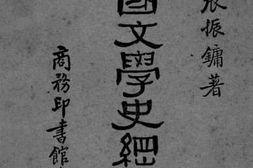 張振鏞著
國文學史綱
商務印書館